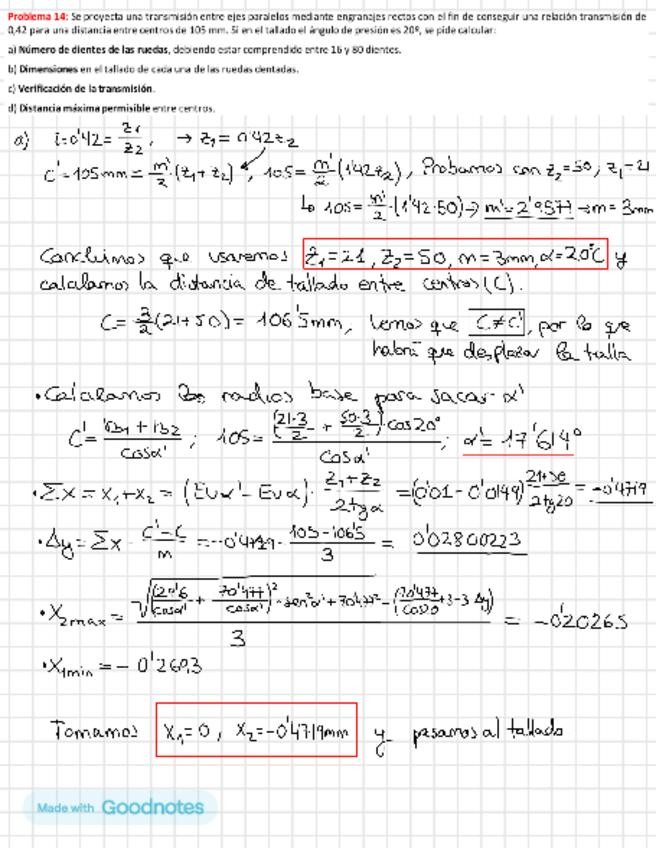 Problema 14: Se proyecta una transmisión entre ejes paralelos mediante engranajes rectos con el fin de conseguir una relación transmisión de
0,42 para una distancia entre centros de 105 mm. Si en el tallado el ángulo de presión es 20º, se pide calcular:
a) Número de dientes de las ruedas, debiendo estar comprendido entre 16 y 80 dientes.
b) Dimensiones en el tallado de cada una de las ruedas dentadas.
c) Verificación de la transmisión.
d) Distancia máxima permisible entre centros.
a) i=0'42= z1/z2, → z1=0'42z2
C'=105mm= m'/2 ·(z1+z2), 105= m'/2 (1'42z2), Probamos con z2=50; z1=21
↳ 105= m'/2 ·(1'42·50)→ m'=2'9577 → m=3mm
Concluimos que usaremos z1=21, z2=50, m=3mm, α=20ºC y
calculamos la distancia de tallado entre centros (C).
C= 3/2 (21+50) = 106'5mm, vemos que C≠C', por lo que
habrá que desplazar la talla
• Calculamos los radios base para sacar α'
C'= (rb1+rb2)/cosα' ; 105= ((21·3)/2 + (50·3)/2) cos20º / cosα' ; α'=17'614º
• Σx = x1+x2 = (Evα'-Evα)· (z1+z2)/(2tgα) =(0'01-0'0149) (21+50)/(2tg20) = -0'4719
• Δy= Σx - (C'-C)/m = -0'4719- (105-106'5)/3 = 0'02800223
• X2max= / 3 = -0'20265
• X1min = - 0'2603
Tomamos X1=0, X2=-0'4719mm y pasamos al tallado
Made with Goodnotes